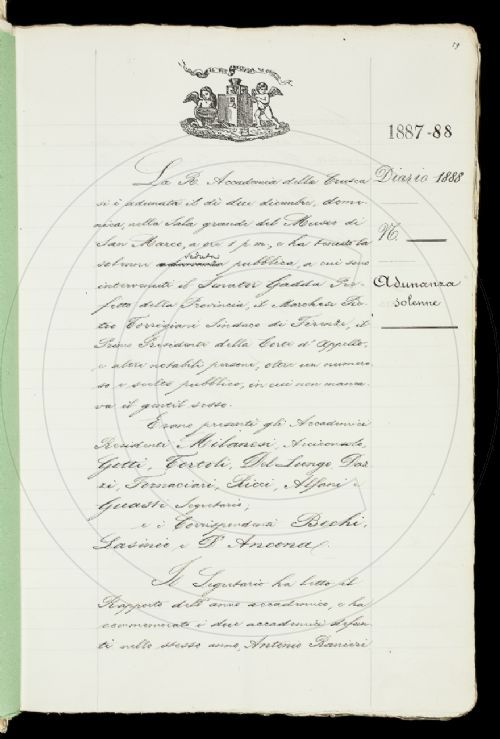 19
1887-88
Diario 1888
N.
Adunanza
solenne
La R. Accademia della Crusca
si è adunata il dì due dicembre, dome-
nica, nella Sala grande del Museo di
San Marco, a ore 1 p.m., e ha tenuto la
solenne adunanza seduta pubblica, a cui sono
intervenuti il Senator Gadda Pre-
fetto della Provincia, il Marchese Pie-
tro Torrigiani Sindaco di Firenze, il
Primo Presidente della Corte d'Appello,
e altre notabili persone, oltre un numero-
so e scelto pubblico, in cui non manca-
va il gentil sesso.
Erano presenti gli Accademici
Presidente Milanesi, Arciconsolo,
Gotti, Tortoli, Del Lungo, Daz-
zi, Fornaciari, Ricci, Alfani e
Guasti Segretario;
e i Corrispondenti Bechi,
Lasinio e D'Ancona.
Il Segretario ha letto il
Rapporto dell'anno accademico, e ha
commemorato i due accademici defun-
ti nello stesso anno, Antonio Ranieri